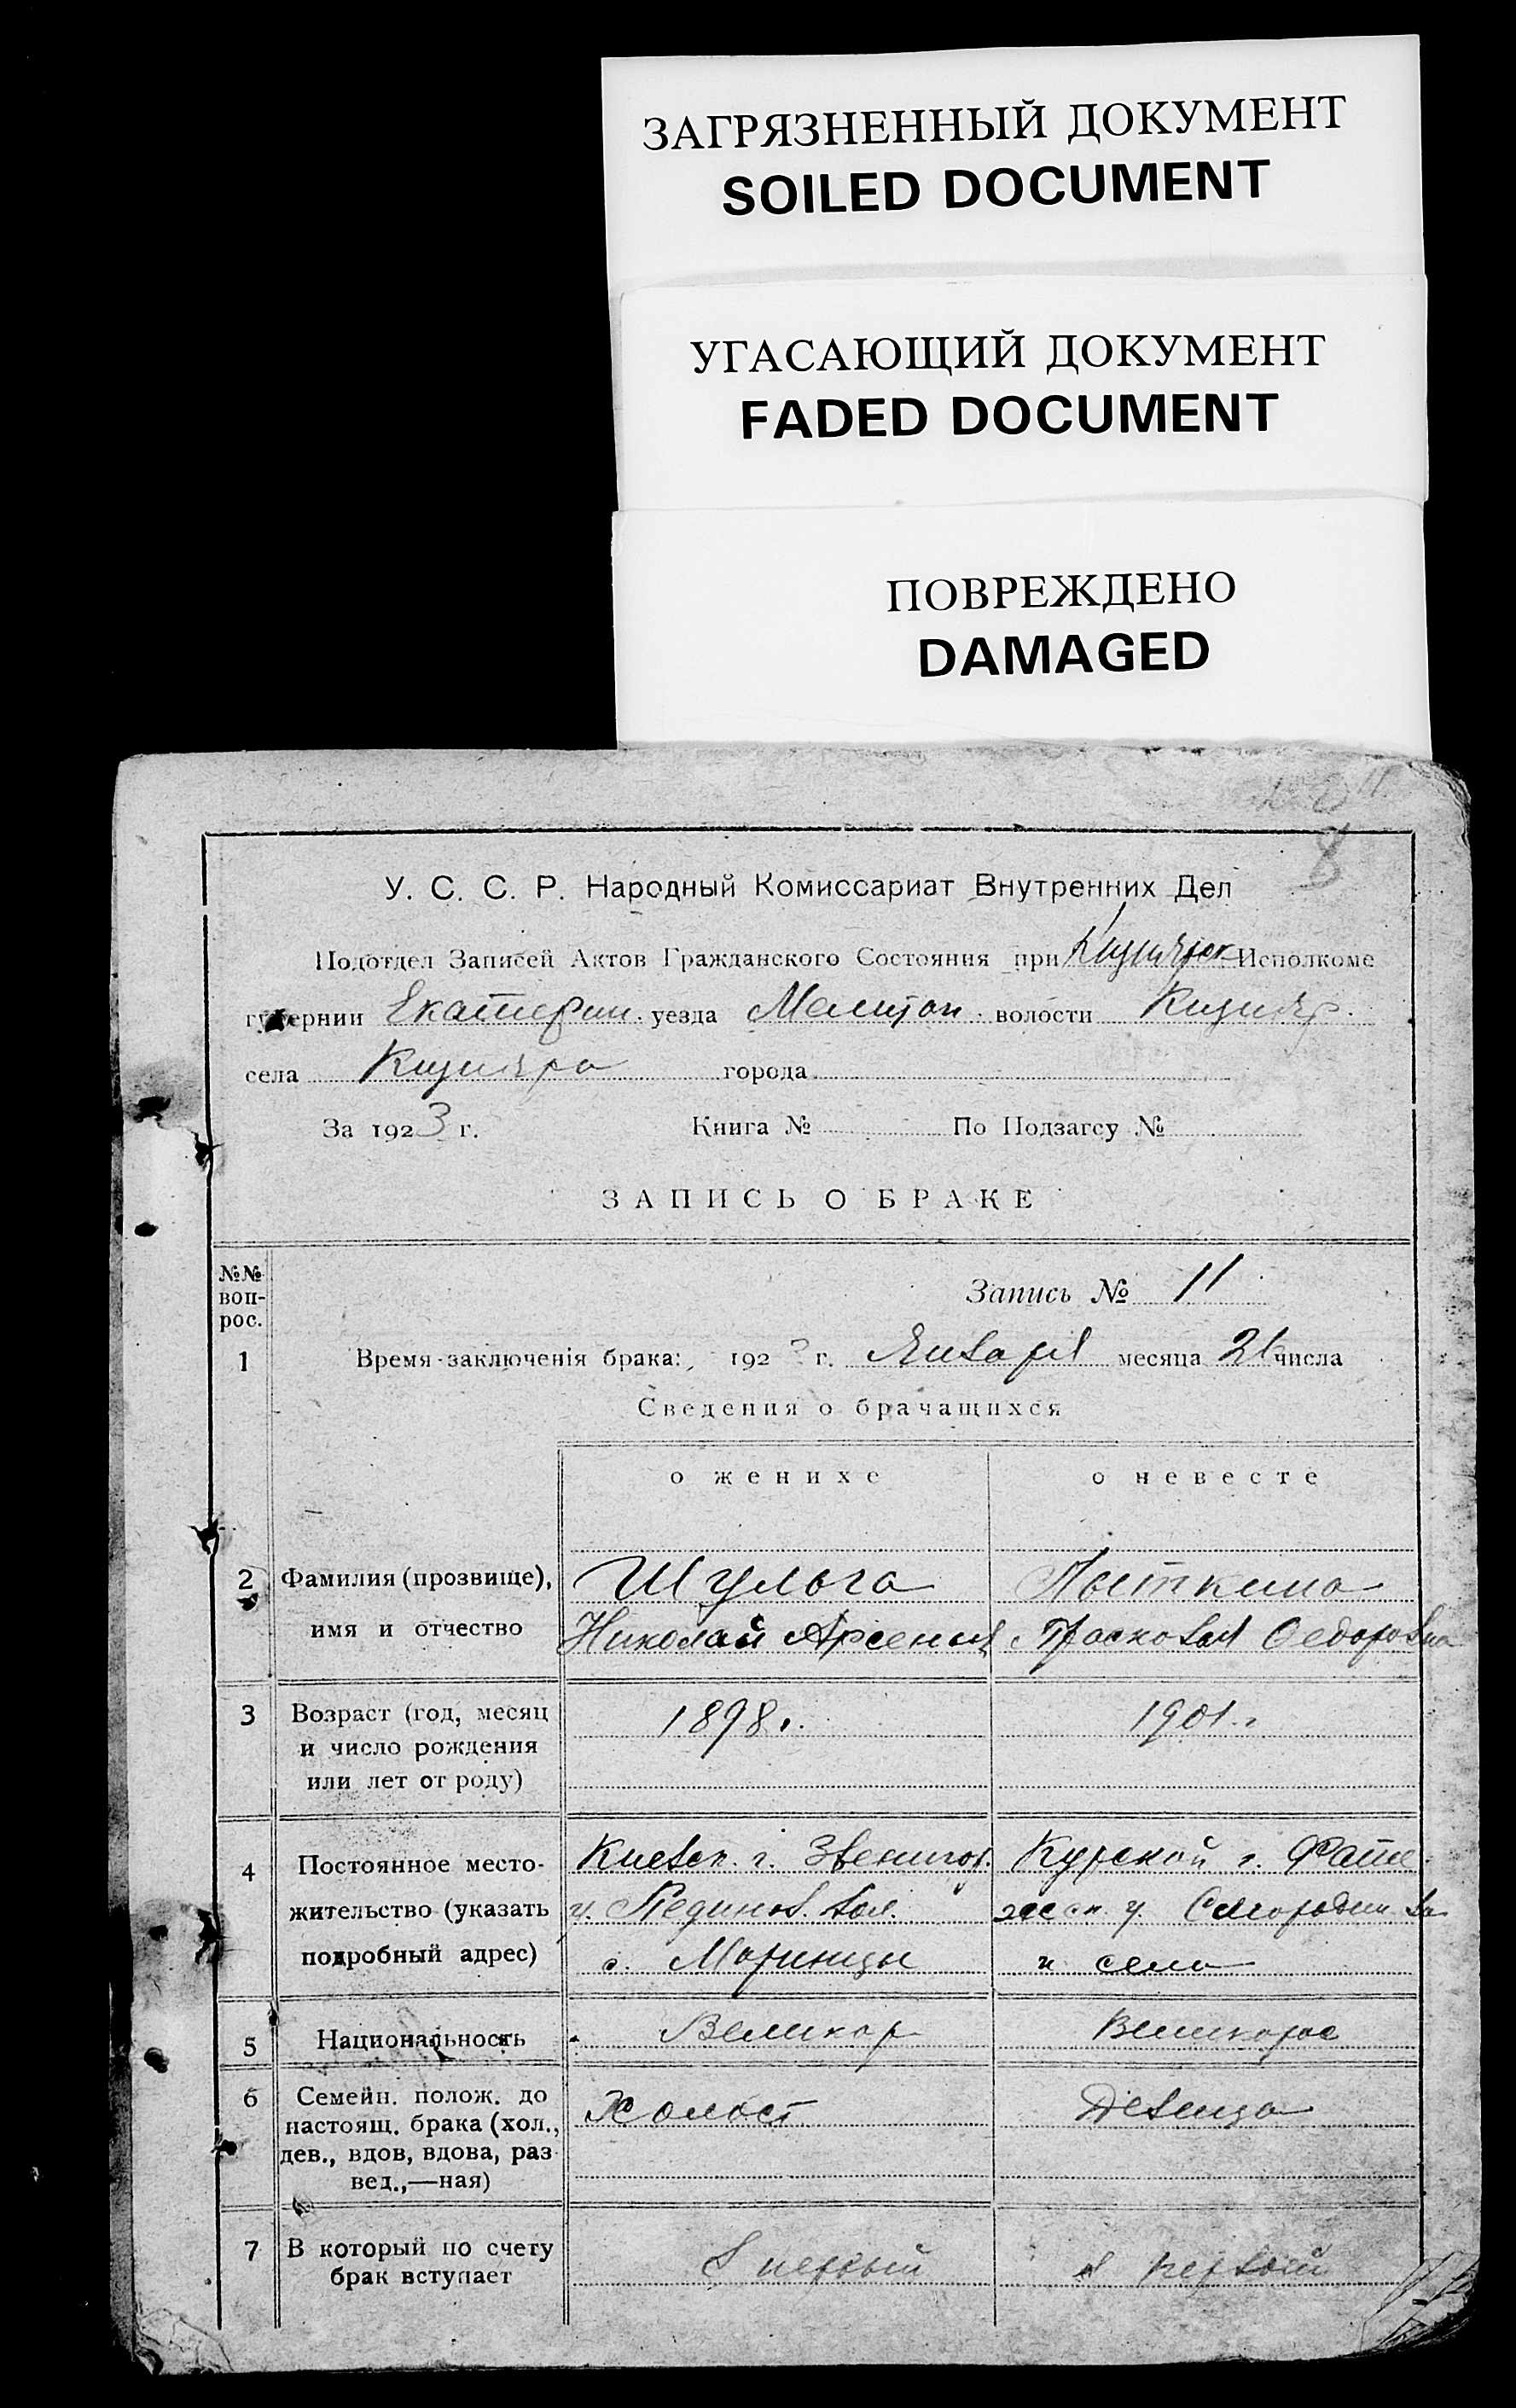 ЗАГРЯЗНЕННЫЙ ДОКУМЕНТ
SOILED DOCUMENT
УГАСАЮЩИЙ ДОКУМЕНТ
FADED DOCUMENT
ПОВРЕЖДЕНО
DAMAGED
8
У. С. С. Р. Народный Комиссариат Внутренних Дел
Подотдел Записей Актов Гражданского Состояния при Исполкоме
губернии Екатерин. уезда Мелитоп. волости Кизияр.
села Кизияра города
За 1923 г. Книга № По Подзагсу №
ЗАПИСЬ О БРАКЕ
№№ вопрос.
Запись № 11
1 Время заключенія брака: 1923 г. Января месяца 21 числа
Сведения о брачащихся
о женихе о невесте
2 Фамилия (прозвище), Шульга
имя и отчество Николай Арсеньев Прасковья Федоровна
3 Возраст (год, месяц 1898. 1901.
и число рождения
или лет от роду)
4 Постоянное место- Киевск. г. Звенигор. Курской г. Фате
жительство (указать у. вол. жск у. Смородин
подробный адрес) с. Моринцы и село
5 Национальность Великор Великорос
6 Семейн. полож. до Холост Девица
настоящ. брака (хол.,
дев., вдов, вдова, раз-
вед.,—ная)
7 В который по счету в первый в первый
брак вступает